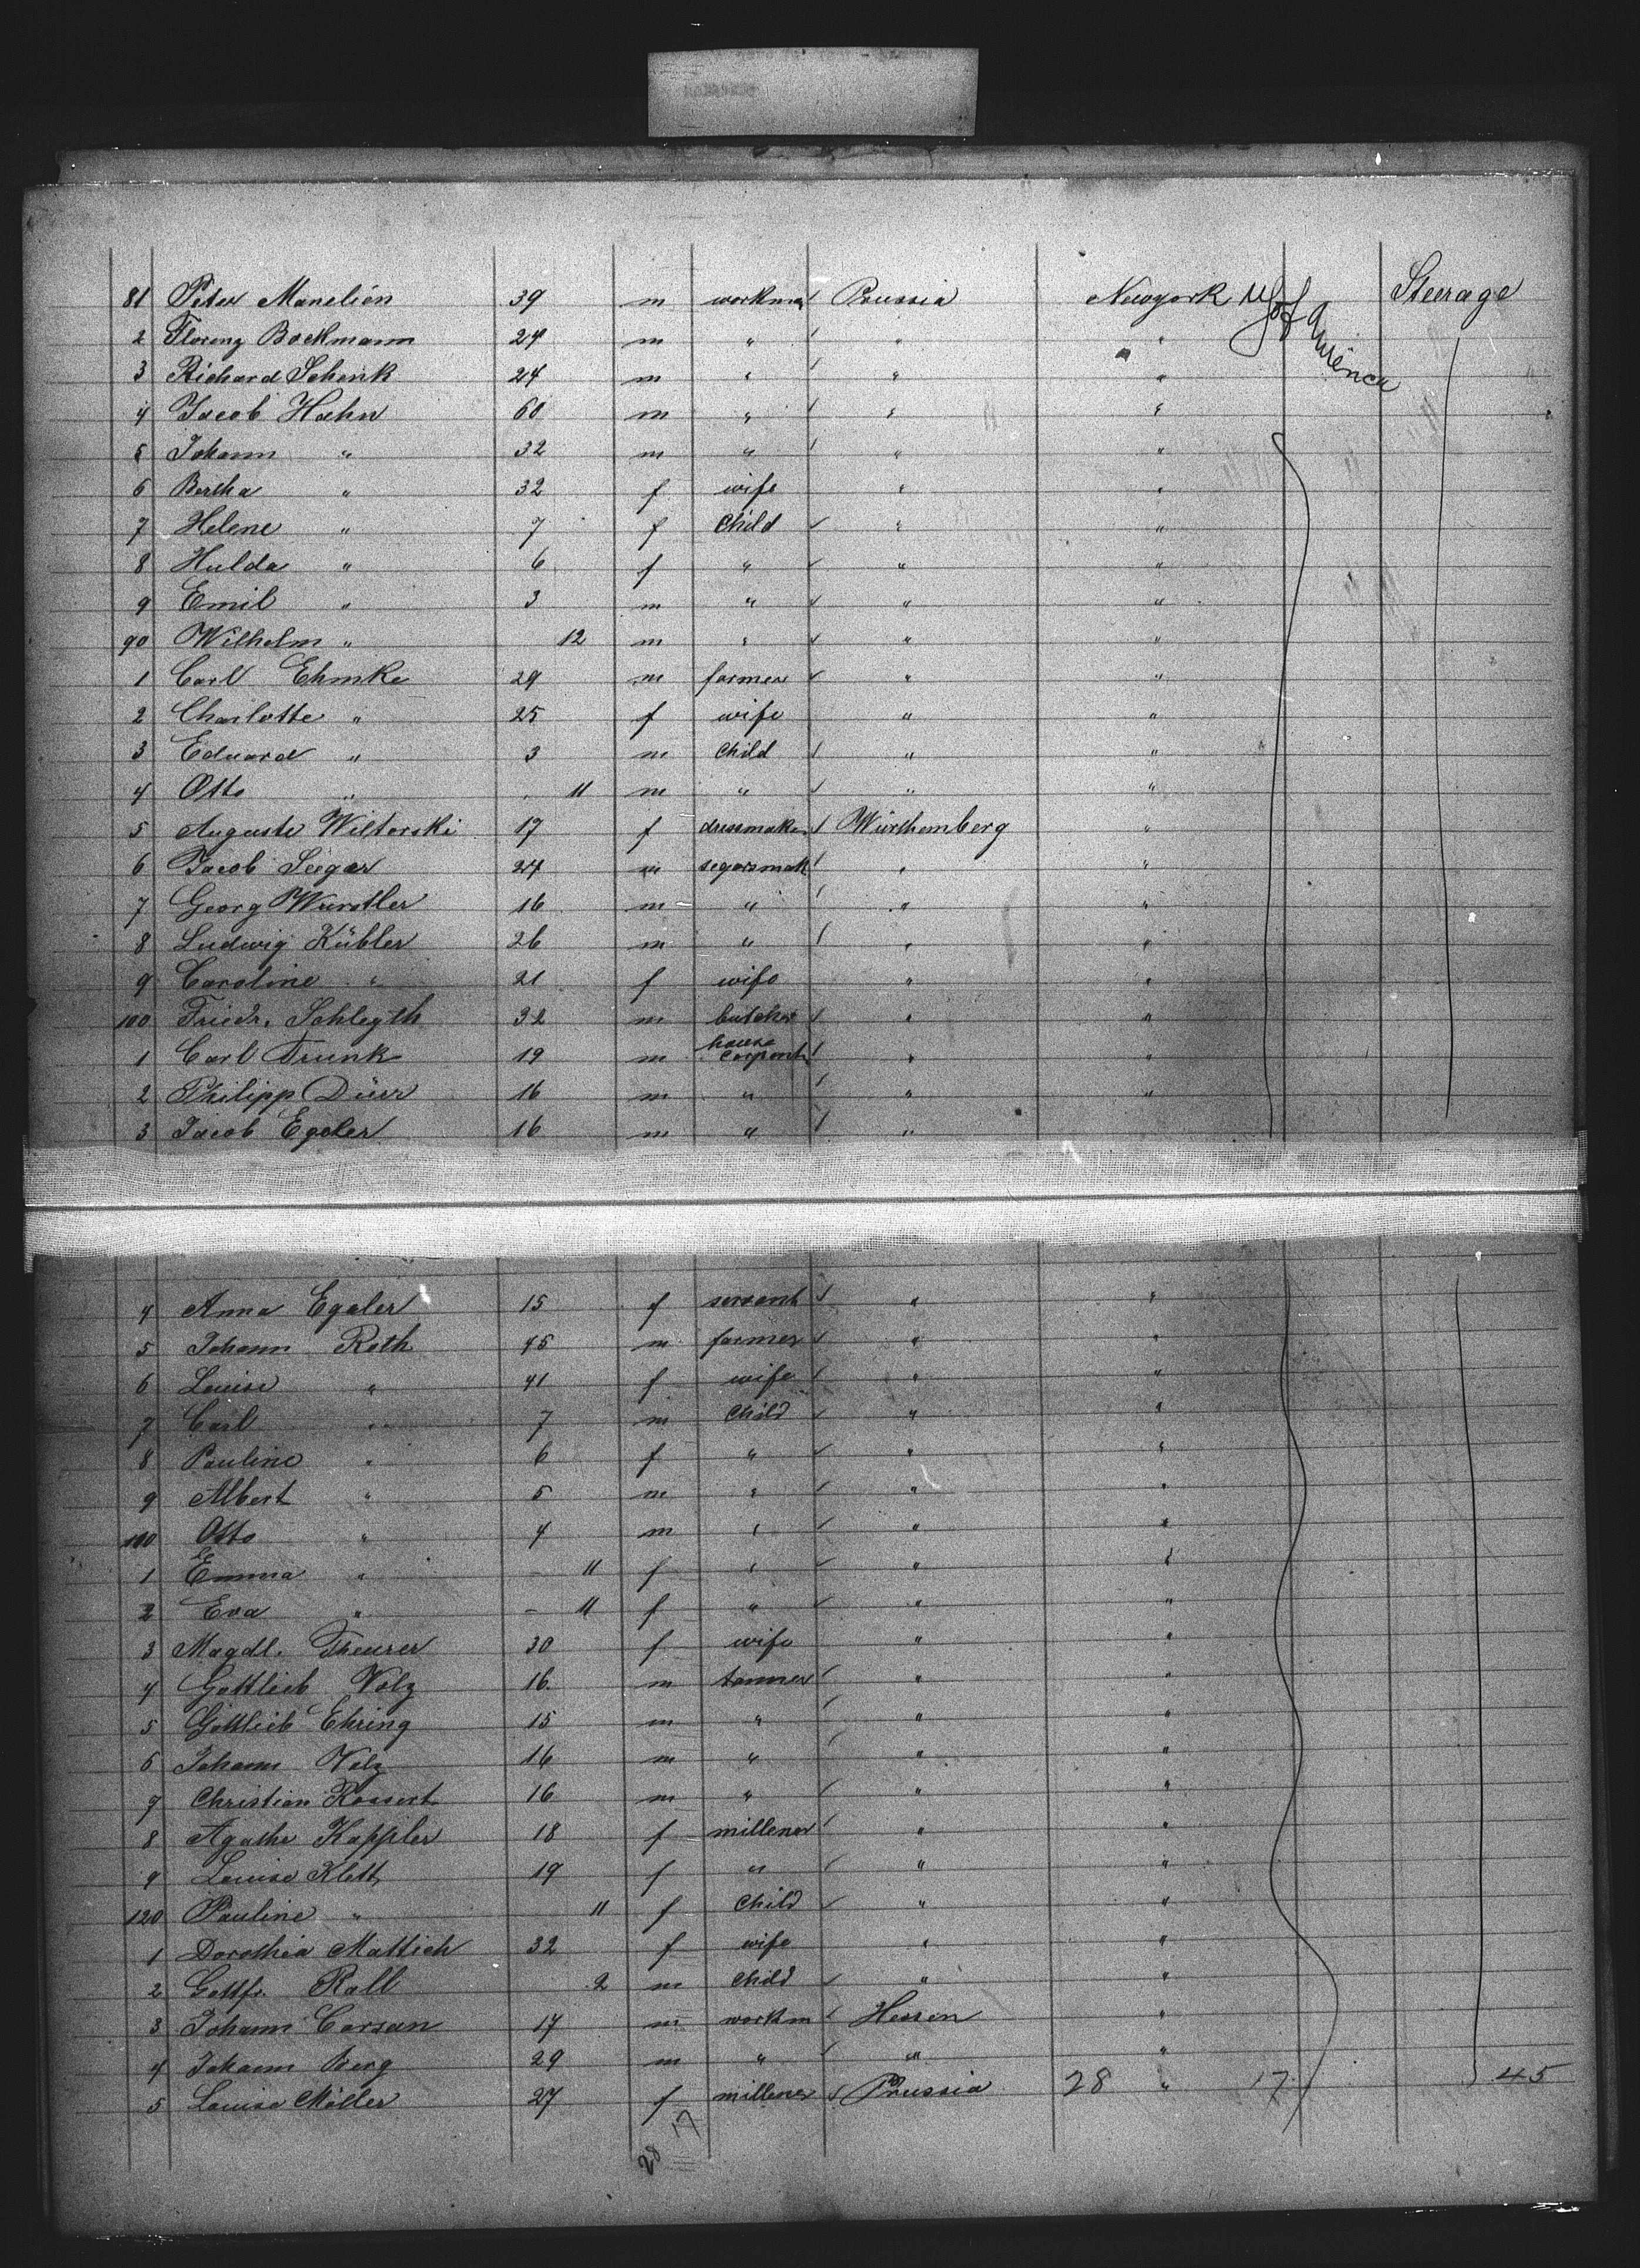 81 Peter Manelien 39 m workma Prussia Newyork U S of America Steerage
2 Florenz Bockmann 24 m " " "
3 Richard Schenk 24 m " " "
4 Jacob Hahn 60 m " " "
5 Johann " 32 m " " "
6 Bertha " 32 f wife " "
7 Helene " 7 f Child " "
8 Hulda " 6 f " " "
9 Emil " 3 m " " "
90 Wilhelm " 12 m " " "
1 Carl Ehmke 29 m farmer " "
2 Charlotte " 25 f wife " "
3 Eduard " 3 m Child " "
4 Otto " 11 m " " "
5 Auguste Wiltorski 17 f dressmaker Würthemberg "
6 Jacob Seeger 24 m segarsmak " "
7 Georg Wurstler 16 m " " "
8 Ludwig Kübler 26 m " " "
9 Caroline " 21 f wife " "
100 Friedr. Schlegth 32 m butcher " "
1 Carl Trunk 19 m house Carpent " "
2 Philipp Dürr 16 m " " "
3 Jacob Egeler 16 m " "
4 Anna Egeler 15 f servant " "
5 Johann Roth 45 m farmer " "
6 Louise " 41 f wife " "
7 Carl " 7 m Child " "
8 Pauline " 6 f " " "
9 Albert " 5 m " " "
110 Otto " 4 m " " "
1 Emma " - 11 f " " "
2 Eva " - 11 f " " "
3 Magdl. Theurer 30 f wife " "
4 Gottlieb Volz 16 m tanner " "
5 Gottlieb Ehring 15 m " " "
6 Johann Volz 16 m " " "
7 Christian Rossert 16 m " " "
8 Agathe Kappler 18 f millener " "
9 Louise Klett 19 f " " "
120 Pauline " 11 f Child " "
1 Dorothea Mattich 32 f wife " "
2 Gottfr. Rall 2 m Child " "
3 Johann Carsan 17 m workm Hessen "
4 Johann Berg 29 m " " "
5 Louise Möller 27 f millener Prussia 28 " 17 45
28 17